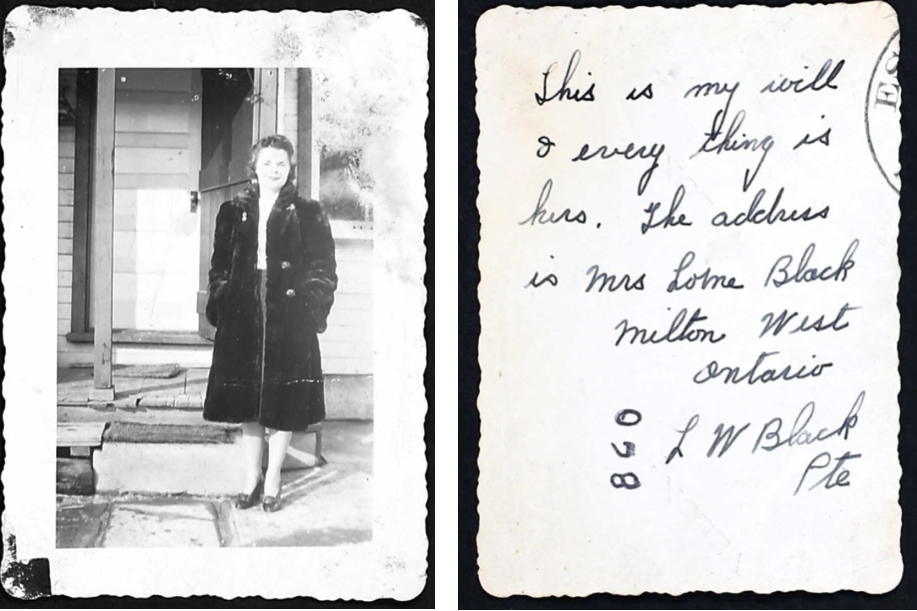 This is my will
& every thing is
hers. The address
is Mrs Lorne Black
Milton West
Ontario
L W Black
Pte
078
ES